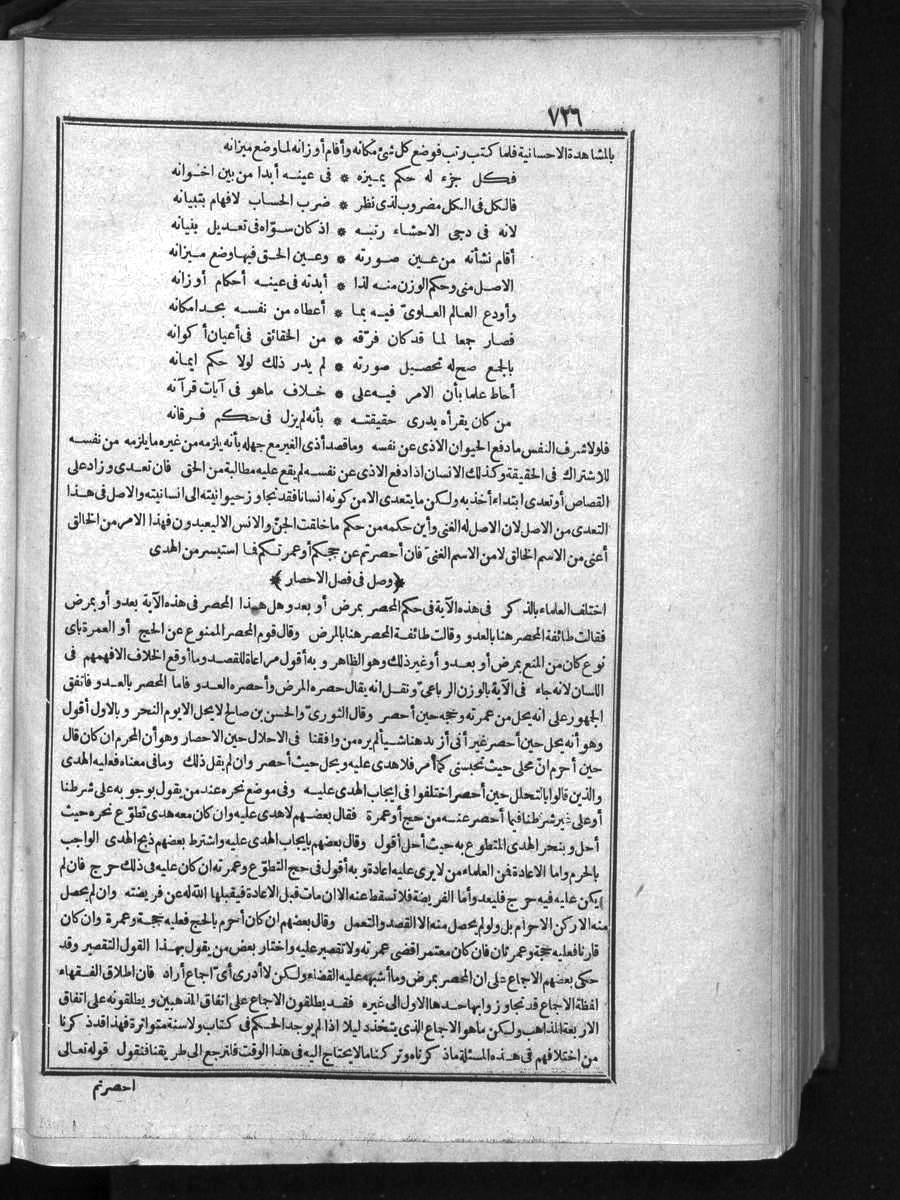 ٧٣٦
بالمشاهدة الاحسانية فلما كتب رتب فوضع كل شئ مكانه وأقام أوزانه لما وضع ميزانه
فـكل جزء له حكم يميزه * فى عينه أبدا من بين اخوانه
فالكل فى الكل مضروب لذى نظر * ضرب الحساب لافهام بتبيانه
لانه فى دجى الاحشاء رتبه * اذ كان سوّاه فى تعديل بنيانه
أقام نشأته من عين صورته * وعين الحق فيها وضع ميزانه
الاصل منى وحكم الوزن منه لذا * أبدته فى عينه أحكام أوزانه
وأودع العالم العلوىّ فيه بما * أعطاه من نفسه بحد امكانه
فصار جمعا لما قد كان فرّقه * من الحقائق فى أعيان أكوانه
بالجمع صح له تحصيل صورته * لم يدر ذلك لولا حكم ايمانه
أحاط علما بأن الامر فيه على * خلاف ماهو فى آيات قرآنه
من كان يقرأه يدرى حقيقته * بأنه لم يزل فى حكم فرقانه
فلولا شرف النفس مادفع الحيوان الاذى عن نفسه وما قصد أذى الغير مع جهله بأنه يلزمه من غيره ما يلزمه من نفسه
للاشتراك فى الحقيقة وكذلك الانسان اذا دفع الاذى عن نفسه لم يقع عليه مطالبة من الحق فان تعدى وزاد على
القصاص أو تعدى ابتداء أخذ به ولكن ما يتعدى الا من كونه انسانا فقد تجاوز حيوانيته الى انسانيته والاصل فى هذا
التعدى من الاصل لان الاصل له الغنى وأين حكمه من حكم ما خلقت الجنّ والانس الا ليعبدون فهذا الامر من الخالق
أعنى من الاسم الخالق لامن الاسم الغنىّ فان أحصرتم عن حجكم أو عمرتكم فما استيسر من الهدى
﴿وصل فى فصل الاحصار﴾
اختلف العلماء بالذكر فى هذه الآية فى حكم المحصر بمرض أو بعدو هل هذا المحصر فى هذه الآية بعدو أو بمرض
فقالت طائفة المحصر هنا بالعدو وقالت طائفة المحصر هنا بالمرض وقال قوم المحصر الممنوع عن الحج أو العمرة باى
نوع كان من المنع بمرض أو بعدو أو غير ذلك وهو الظاهر وبه أقول مراعاة للقصد وما أوقع الخلاف الا فهمهم فى
اللسان لانه جاء فى الآية بالوزن الرباعىّ ونقل انه يقال حصره المرض وأحصره العدو فاما المحصر بالعدو فاتفق
الجمهور على انه يحل من عمرته وحجه حين أحصر وقال الثورىّ والحسن بن صالح لا يحل الا يوم النحر وبالاول أقول
وهو أنه يحل حين أحصر غير أنى أزيد هنا شيأ لم يره من وافقنا فى الاحلال حين الاحصار وهو أن المحرم ان كان قال
حين أحرم انّ محلى حيث تحبسنى كما أمر فلا هدى عليه ويحل حيث أحصر وان لم يقل ذلك وما فى معناه فعليه الهدى
والذين قالوا بالتحلل حين أحصر اختلفوا فى ايجاب الهدى عليه وفى موضع نحره عند من يقول بوجوبه على شرطنا
أو على غير شرطنا فيما أحصر عنه من حج أو عمرة فقال بعضهم لا هدى عليه وان كان معه هدى تطوّع نحره حيث
أحل وبنحر الهدى المتطوع به حيث أحل أقول وقال بعضهم بايجاب الهدى عليه واشترط بعضهم ذبح الهدى الواجب
بالحرم واما الاعادة فمن العلماء من لا يرى عليه اعادة وبه أقول فى حج التطوّع وعمرته ان كان عليه فى ذلك حرج فان لم
يكن عليه فيه حرج فليعد وأما الفريضة فلا تسقط عنه الا ان مات قبل الاعادة فيقبلها الله له عن فريضته وان لم يحصل
منه الاركن الاحرام بل ولو لم يحصل منه الا القصد والتعمل وقال بعضهم ان كان أحرم بالحج فعليه حجة وعمرة وان كان
قارنا فعليه حجة وعمرتان فان كان معتمر اقضى عمرته ولا تقصير عليه واختار بعض من يقول بهذا القول التقصير وقد
حكى بعضهم الاجماع على ان المحصر بمرض وما أشبهه عليه القضاء ولكن لا أدرى أىّ اجماع أراد فان اطلاق الفقهاء
لفظة الاجماع قد تجاوزوا بها حدها الاول الى غيره فقد يطلقون الاجماع على اتفاق المذهبين ويطلقونه على اتفاق
الاربعة المذاهب ولكن ما هو الاجماع الذى يتخذ دليلا اذا لم يوجد الحكم فى كتاب ولا سنة متواترة فهذا قد ذكرنا
من اختلافهم فى هذه المسئلة ما ذكرناه وتركنا ما لا يحتاج اليه فى هذا الوقت فلنرجع الى طريقنا فنقول قوله تعالى
احصرتم